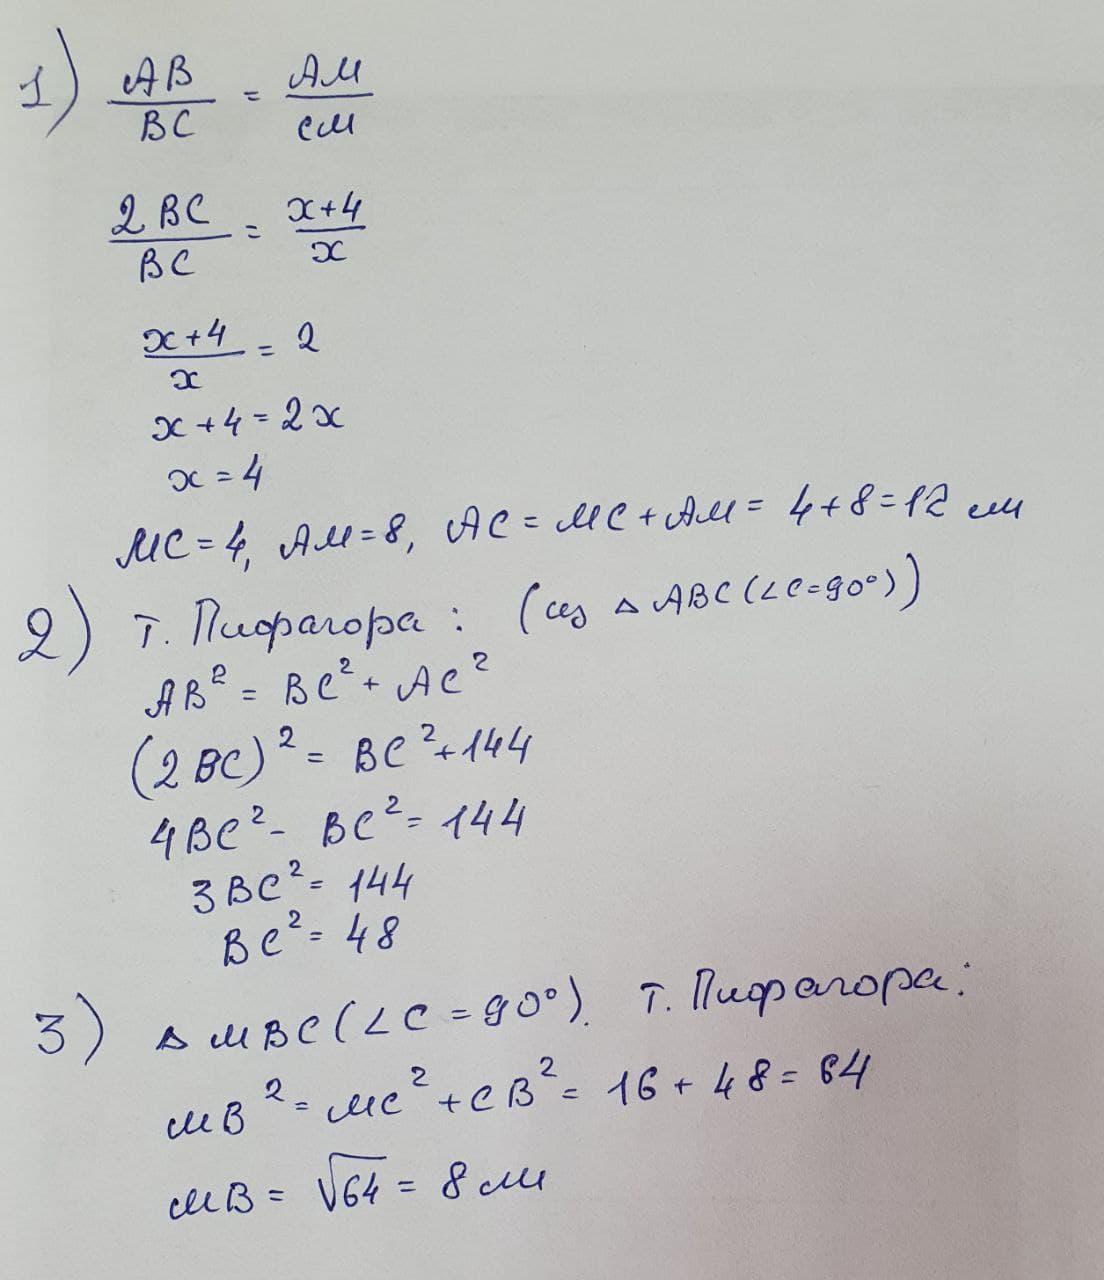 1) AB/BC = AM/CM
2BC/BC = x+4/x
x+4/x = 2
x+4=2x
x=4
MC=4, AM=8, AC=MC+AM=4+8=12 см
2) т. Пифагора: (из △ABC(∠C=90°))
AB²=BC²+AC²
(2BC)²=BC²+144
4BC²-BC²=144
3BC²=144
BC²=48
3) △MBC(∠C=90°). т. Пифагора:
MB²=MC²+CB²=16+48=64
MB=√64=8 см